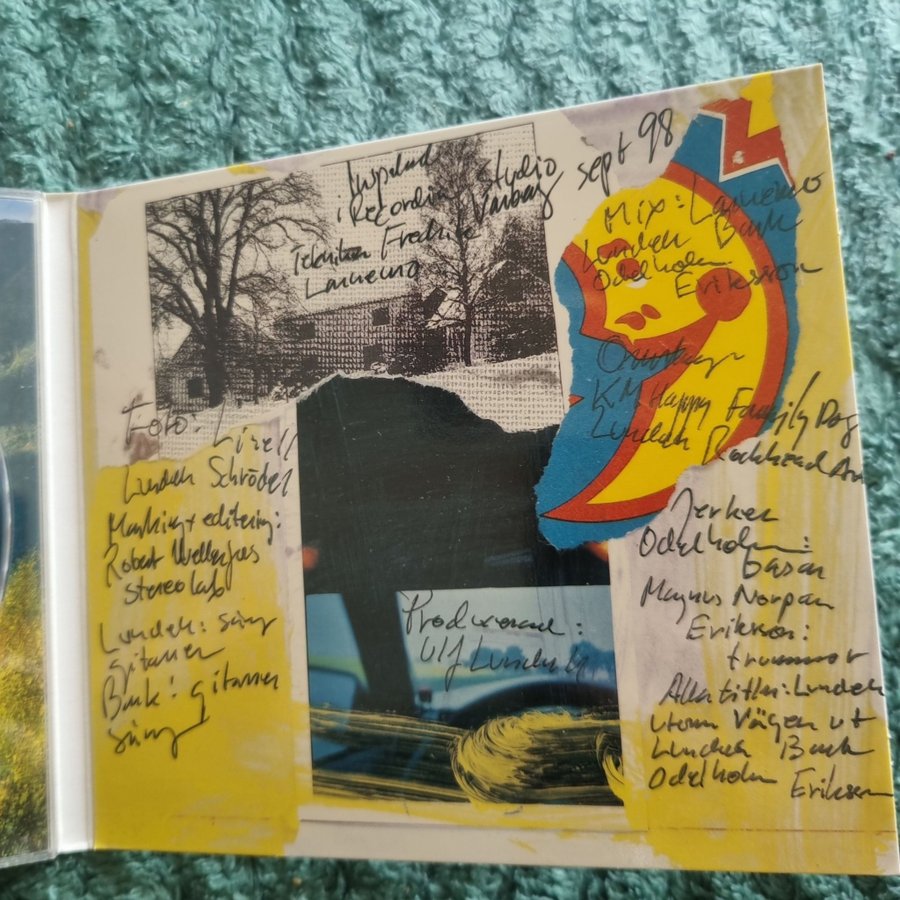 Inspelad
i Recording Studio
Varberg sept 98
Tekniker Fredrik
Lanemo
Mix: Lanemo
Lundell Bark
Odelholm
Eriksson
K.M. Happy Family Dog
Lundell Rockhead Art
Foto: Lizell
Lundell Schrödel
Mastring + editering:
Robert Wellerfors
Stereolab
Lundell: sång
gitarrer
Bark: gitarrer
sång
Producerad:
Ulf Lundell
Jerker
Odelholm:
basar
Magnus Norpan
Eriksson:
trummor
Alla titlar: Lundell
utom Vägen ut
Lundell Bark
Odelholm Eriksson